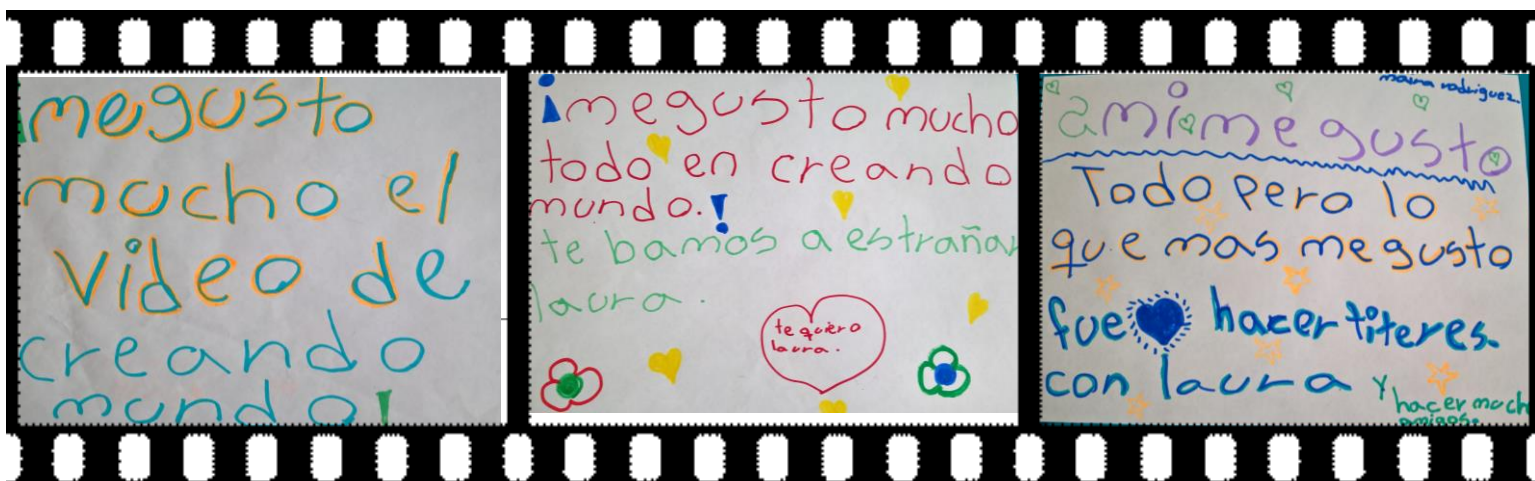 megusto
mucho el
video de
creando
mundo!
¡megusto mucho
todo en creando
mundo.!
te bamos a estrañar
laura.
te quiero
laura.
rodriguez.
a mi me gusto
Todo pero lo
que mas me gusto
fue hacer titeres.
con laura
y
hacer much
amigos.